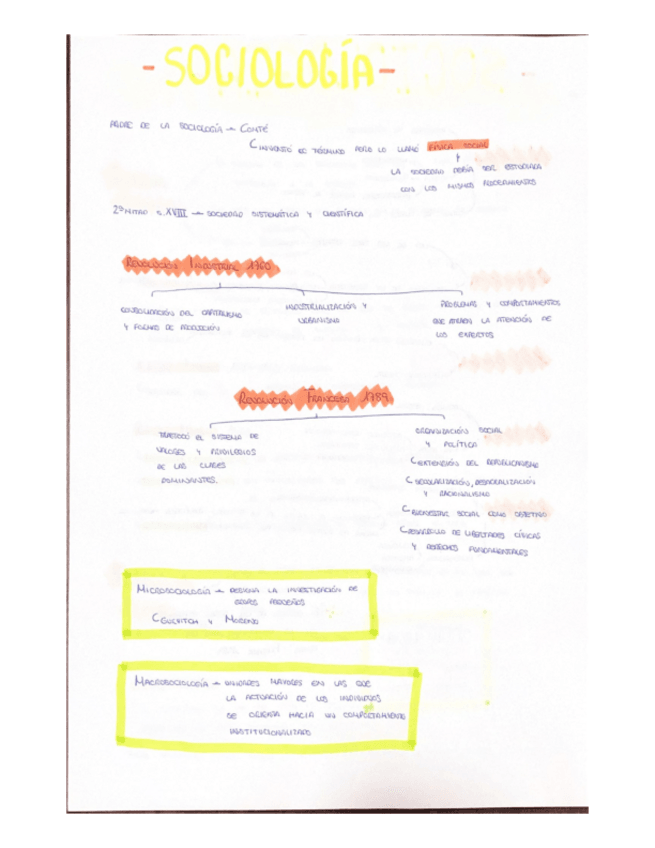 - SOCIOLOGÍA -
PADRE DE LA SOCIOLOGÍA → CONTÉ
INVENTÓ EL TÉRMINO PERO LO LLAMÓ FÍSICA SOCIAL
LA SOCIEDAD DEBÍA SER ESTUDIADA
CON LOS MISMOS PROCEDIMIENTOS
2ª MITAD S. XVIII → SOCIEDAD SISTEMÁTICA Y CIENTÍFICA
REVOLUCIÓN INDUSTRIAL 1760
CONSOLIDACIÓN DEL CAPITALISMO
Y FORMAS DE PRODUCCIÓN
INDUSTRIALIZACIÓN Y
URBANISMO
PROBLEMAS Y COMPORTAMIENTOS
QUE ATRAEN LA ATENCIÓN DE
LOS EXPERTOS
REVOLUCIÓN FRANCESA 1789
TRASTOCÓ EL SISTEMA DE
VALORES Y PRIVILEGIOS
DE LAS CLASES
DOMINANTES.
ORGANIZACIÓN SOCIAL
Y POLÍTICA
EXTENSIÓN DEL REPUBLICANISMO
SECULARIZACIÓN, DESACRALIZACIÓN
Y RACIONALISMO
BIENESTAR SOCIAL COMO OBJETIVO
DESARROLLO DE LIBERTADES CÍVICAS
Y DERECHOS FUNDAMENTALES
MICROSOCIOLOGÍA → DESIGNA LA INVESTIGACIÓN DE
GRUPOS PEQUEÑOS
GURVITCH Y MORENO
MACROSOCIOLOGÍA → UNIDADES MAYORES EN LAS QUE
LA ACTUACIÓN DE LOS INDIVIDUOS
SE ORIENTA HACIA UN COMPORTAMIENTO
INSTITUCIONALIZADO